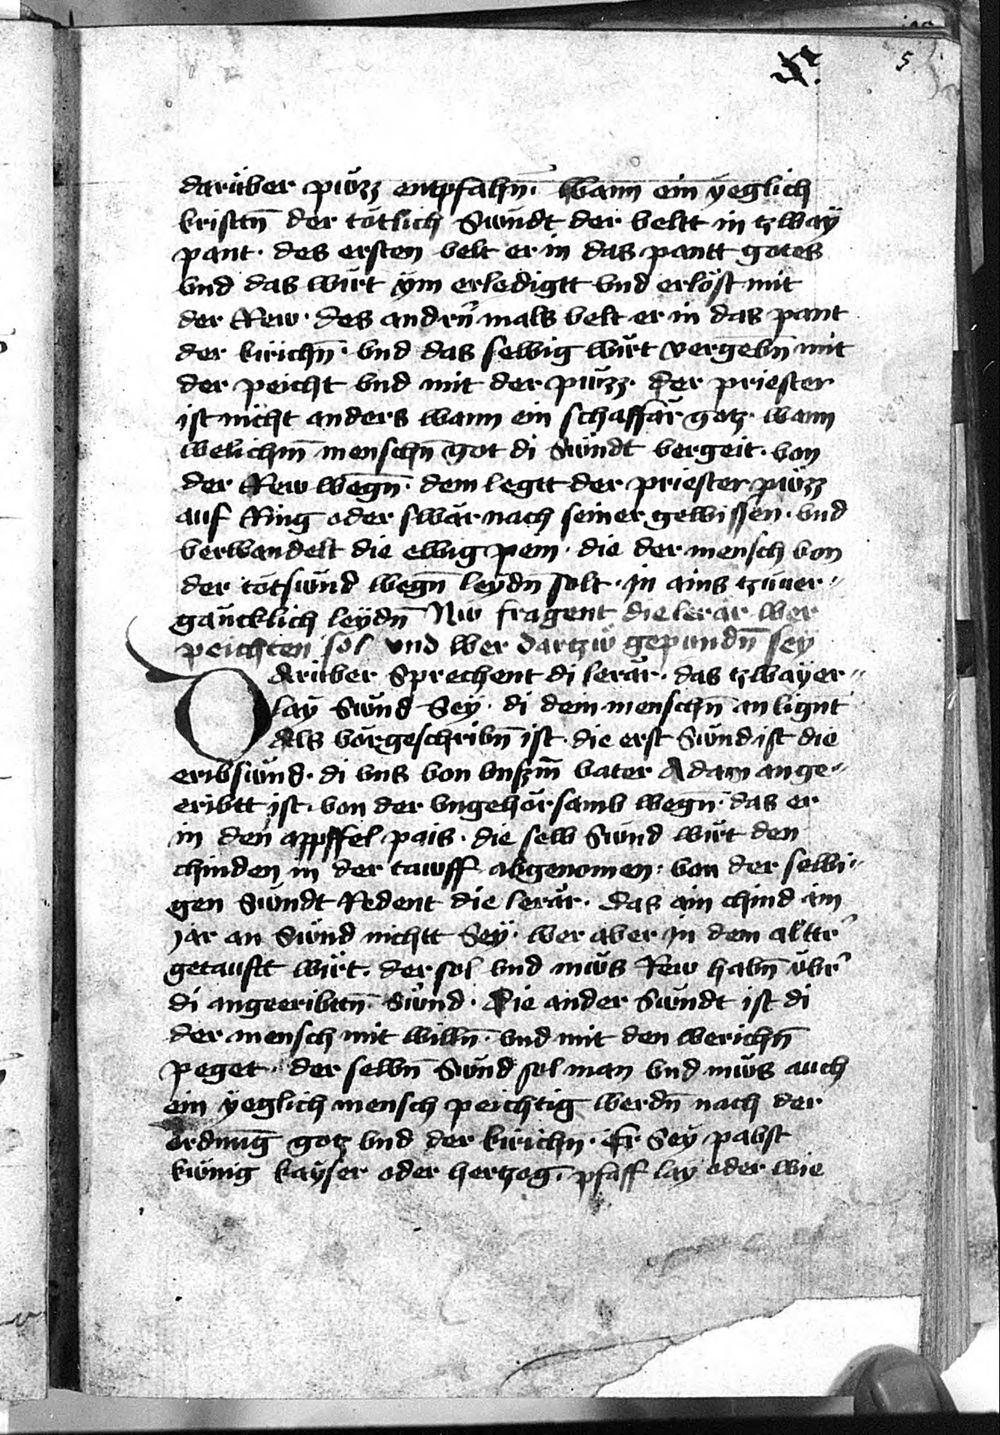 5
darüber püezz entpfahn̄. Wann ein yeglich
kristtn̄ der tötlich Sündt der velt in tzway
pant. des ersten velt er in das pantt gotes
vnd das wirt ym erledigtt vnd erlöst mit
der Rew. des andrn̄ mals velt er in das pant
der kirichn̄. vnd das selbig wirt vergebn̄ mit
der peicht vnd mit der püzz. der priester
ist nicht anders wann ein schaffär gotz. wann
welichm̄ menschn̄ got di Sündt vergeit. von
der Rew wegn̄. dem legtt der priester püezz
auf Ring oder swär nach seiner gewissen. vnd
verwandelt die ewig pein. die der mensch von
der totsünd wegn̄ leydn̄ solt. in ains tzuuer-
gäncklich leydn̄ Nw fragent die lerär wer
peichten sol vnd wer dartzw gepundn̄ sey
Darüber Sprechent di lerär. das tzwayer-
lay Sünd Sey. di dem menschn̄ an lignt
Als vorgeschribn̄ ist. die erst Sünd ist die
eribsünd. di vns von vnszm̄ vater Adam ange-
eribtt ist. von der vngehörsamb wegn̄. das er
in den appffel pais. die selb Sünd wirt den
chinden in der tawff abgenomen. von der selbi-
gen Sündt Redent die lerär. das ain chind ain
jar an Sünd nichtt Sey. wer aber in dem alttr̄
getaufft wirt. der sol vnd mus Rew habn̄ vbr̄
di angeeribttn̄ Sünd. Die ander Sündt ist di
der mensch mit willn̄. vnd mit den werichn̄
peget. der selbn̄ Sünd sol man vnd mus auch
ein yeglich mensch peichtig werdn̄ nach der
ordnung gotz vnd der kirichn. Er Sey pabst
künig kayser oder hertzog. pfaff lay oder wie